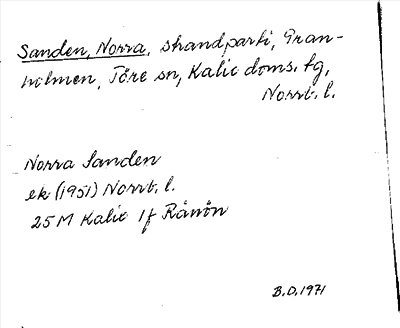 Sanden, Norra, strandparti, Gran-
holmen, Töre sn, Kalix doms. tg,
Norrb. l.
Norra Sanden
ek (1951) Norrb. l.
25 M Kalix 1f Rånön
B.D. 1971